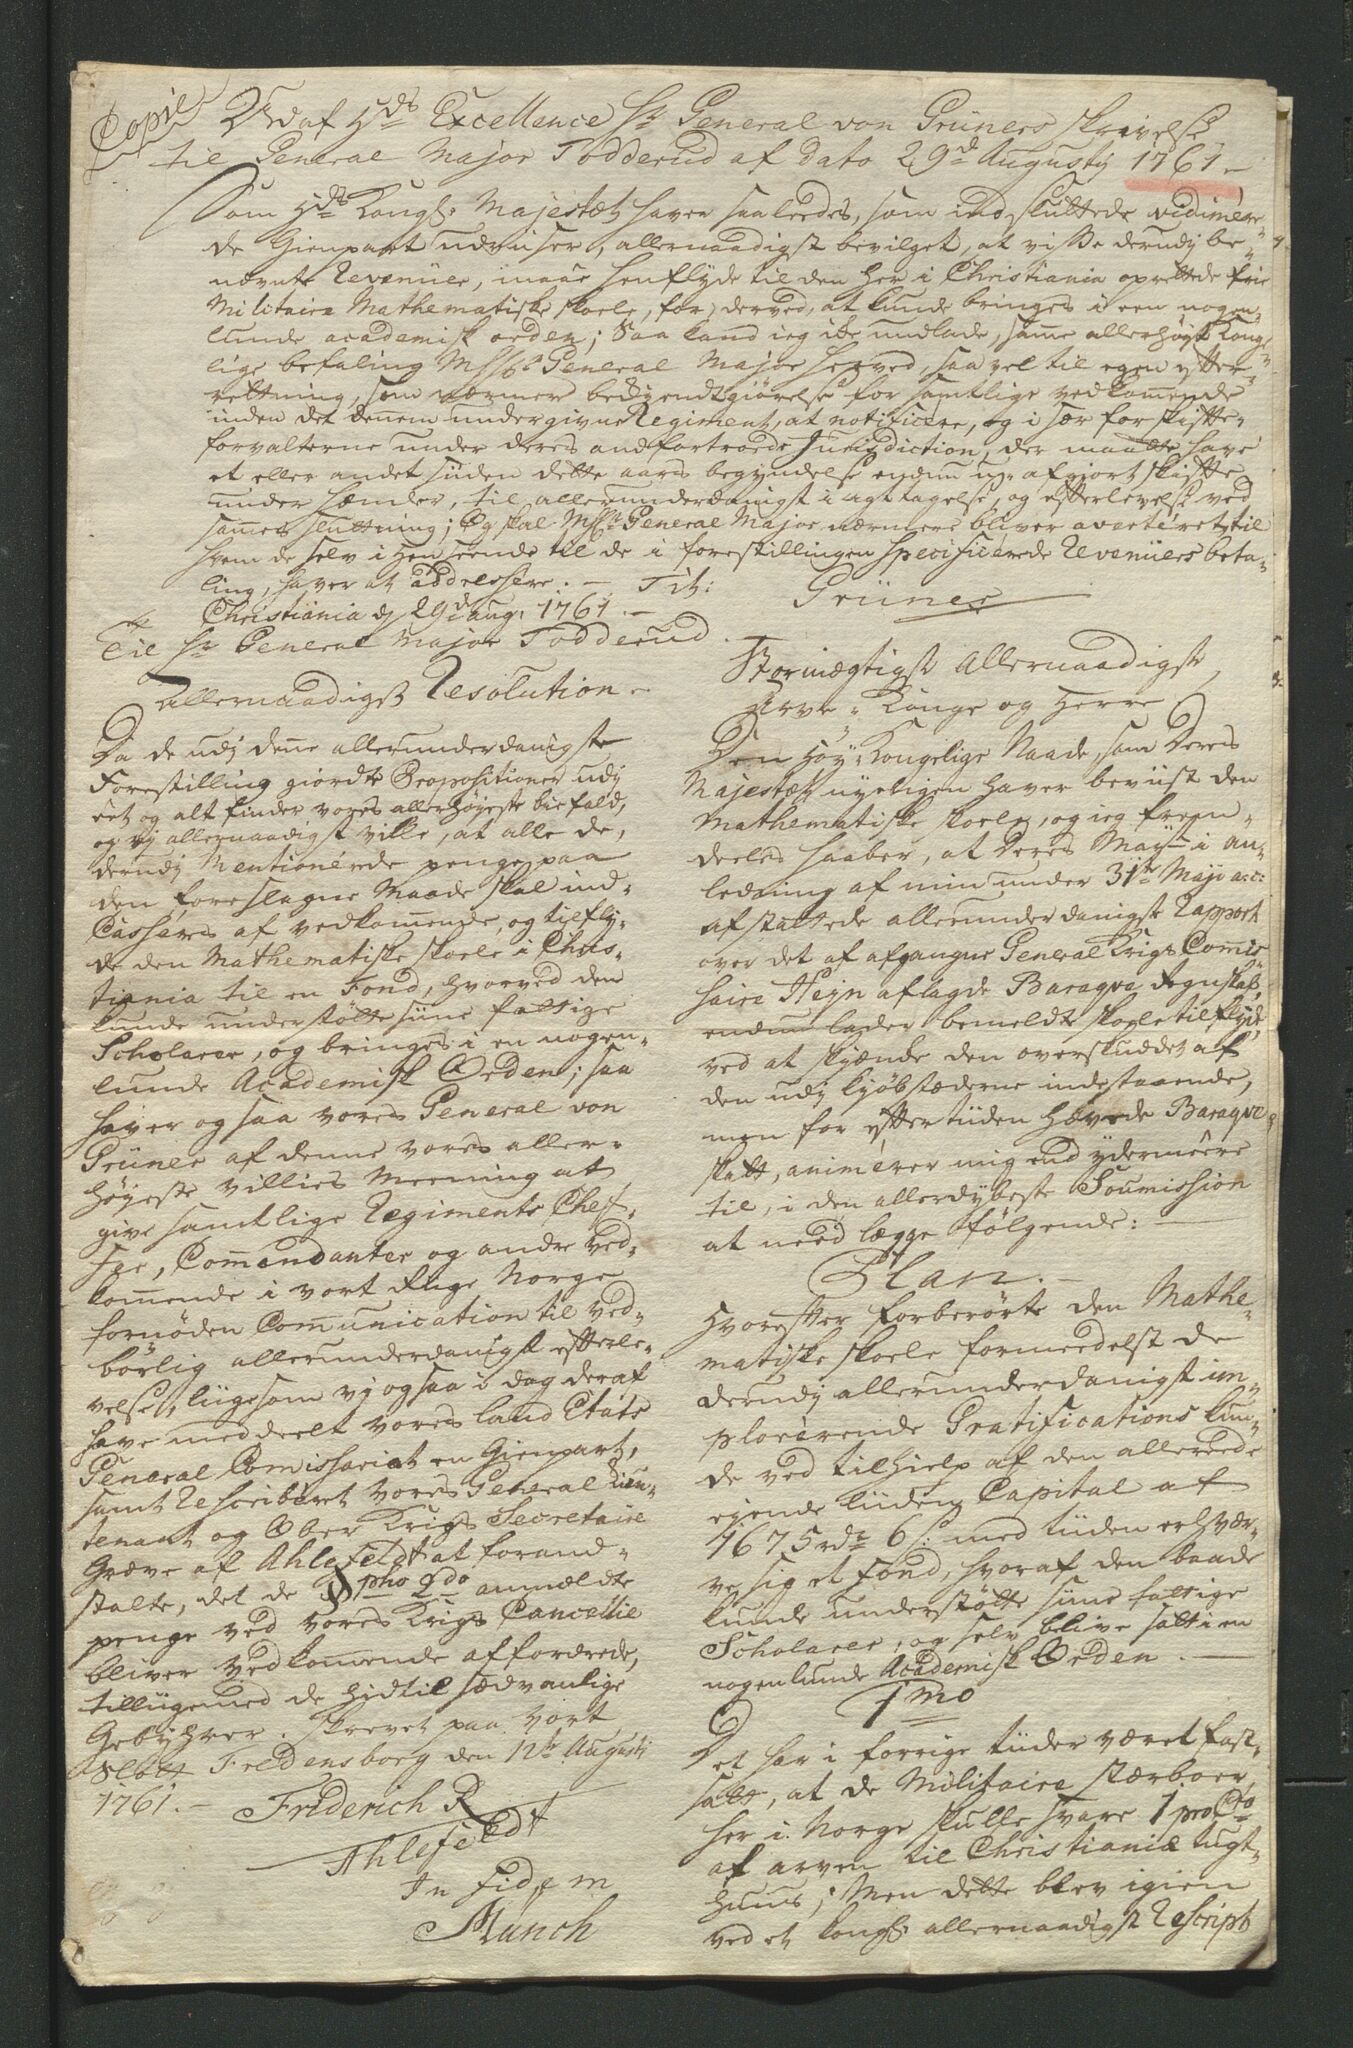 Copie
Udaf Hds Excellence Hr General von Grüners skrivelse
til General Major Todderud af dato 29d Augusty 1761 —
Som Hds Kongl: Majestæt haver saaledes, som indsluttede vidimere-
de Gienpart udviser, allernaadigst bevilget, at visse derudj be-
nævnte Revenüer, maae henflyde til den her i Christiania oprettede frie
Militaire Mathematiske skoele, for derved, at kunde bringes i een nogen-
lunde academisk orden; Saa kand ieg ike undlade, samme allerhøyst Konge-
lige befaling General Major herved, saa vel til egen efter-
rettning, som nærmere bekiendtgiørelse for samtlige vedkommende
inden det dennem undergivne Regiment, at notificere, og i sær for skifte-
forvalterne under deres andfortroede Jurisdiction, der maatte have
et eller andet siden dette aars begyndelse endnu u-afgiort skifte
under hænder, til allerunderdanigst iagttagelse, og efterlevelse ved
sammes sluttning; Og skal General Major nærmere bliver averteret, til
hvem de selv i henseende til de i forestillingen Specificerede Revenüers beta-
ling, haver at addressere. — Tit:
Christiania d 29d aug: 1761. — Grüner
Til Hr General Major Todderud.
Allernaadigst Resolution —
Da de udj denne allerunderdanigste
Forestilling giordte Propositioner udj
eet og alt finder vores allerhøyeste biefald,
og vj allernaadigst ville, at alle de,
derudj Mentionerde penge paa
den foreslagne Maade skal ind-
Casseres af vedkommende, og tilfly-
de den Mathematiske skoele i Chris-
tiania til en Fond, hvorved den
kunde understøtte sine fattige
Scholarer, og bringes i en nogen-
lunde Academisk Orden; saa
haver og saa vores General von
Grüner af denne vores aller-
høyeste villies Meening at
give samtlige Regiments Chef-
fer, Commandanter og andre ved-
kommende i vort Rige Norge
fornøden Communication til ved-
børlig allerunderdanigst efterle-
velse, liigesom vj ogsaa i dag deraf
have meddeelt vores land Etats
General Comissariat en Gienpart,
samt Rescriberet vores General Lieu-
tenant og Ober Krigs Secretaire
Greve af Ahlefeldt at foran-
stalte, det de § pho 2do anmeldte
penge ved vores Krigs Cancellie
bliver vedkommende affordrede,
tilliigemed de hidtil sædvanlige
Gebyhrer. Skrevet paa vort
Slott Fredensborg den 12te Augusty
1761. —
Friderich R
Ahlefeldt
In fidem
Münch
Stormægtigste Allernaadigste
Arve-Konge og Herre
Den Høy-Kongelige Naade, som Deres
Majestæt nyeligen haver beviist den
Mathematiske skoele, og ieg frem-
deeles haaber, at Deres Mayt i an-
ledning af min under 31te Maji a: c:
afstattede allerunderdanigste Rapport
over det af afgangne General Krigs Comis-
saire Heyn aflagde Baraqve Regnskab,
endnu lader bemeldte skoele tilflyde,
ved at skiænke den overskuddet af
den udj kiøbstæderne indestaaende,
men for eftertiiden hævede Baraqve
skatt, animerer mig end ydermeere
til, i den allerdybeste Soumission
at need lægge følgende: —
Plan. —
Hvorefter forberørte den Mathe-
matiske skoele formeedelst de
derudj allerunderdanigst im-
plorerende Gratifications kun-
de ved tilhielp af den allereede
eyende liiden Capital af
1675 rdr 6 s: med tiiden erhver-
ve sig et Fond, hvoraf den baade
kunde understøtte sine fattige
Scholarer, og selv blive satt i en
nogenlunde Academisk Orden. —
1mo
Det har i forrige tiider været fast-
satt, at de Militaire stærboer
her i Norge skulle svare 1 pro Cto
af arven til Christianiæ tugt-
huus; Men dette blev igien
ved et kongl: allernaadigst Rescript